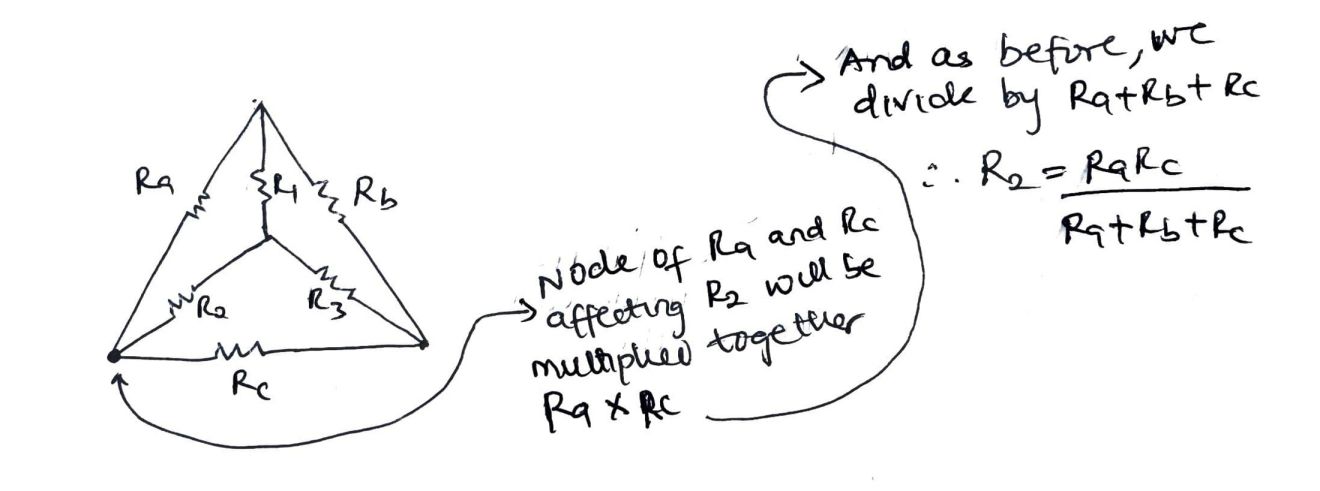 Ra
R1
Rb
R2
R3
Rc
Node of Ra and Rc
affecting R2 will be
multiplied together
Ra × Rc
And as before, we
divide by Ra+Rb+Rc
∴ R2 = RaRc
Ra+Rb+Rc